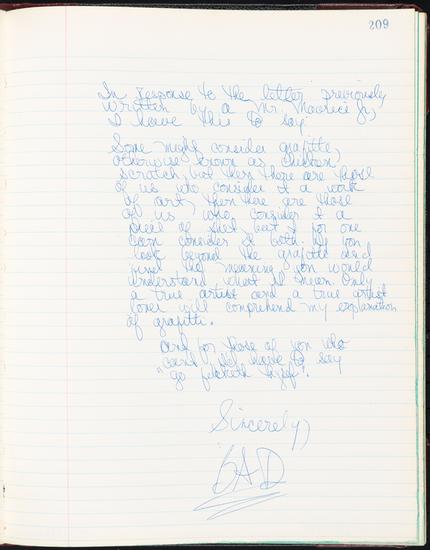 209
In response to the letter previously
written by a Mr. Maurice Jr,
I have this to say
Some might consider grafitte,
otherwise known as chicken
scratch, but then there are those
of us who consider it a work
of art, then there are those
of us who consider it a
piece of shit but I for one
can consider it both. If you
look beyond the grafitte and
find the meaning you would
understand what I mean. Only
a true artist and a true artist
lover will comprehend my explanation
of grafitti.
and for those of you who
cant I'd have to say
"go fucketh thyself".
Sincerely,
BAD